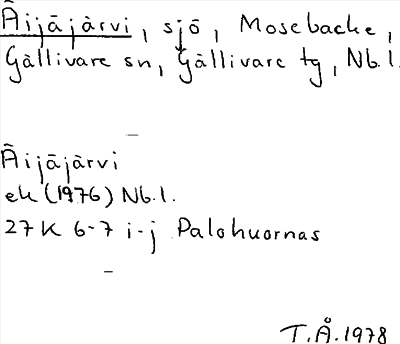 Äijäjärvi, sjö, Mosebacke,
Gällivare sn, Gällivare tg, Nb.l.
Äijäjärvi
ek (1976) Nb.l.
27K 6-7 i-j Palohuornas
T.Å. 1978